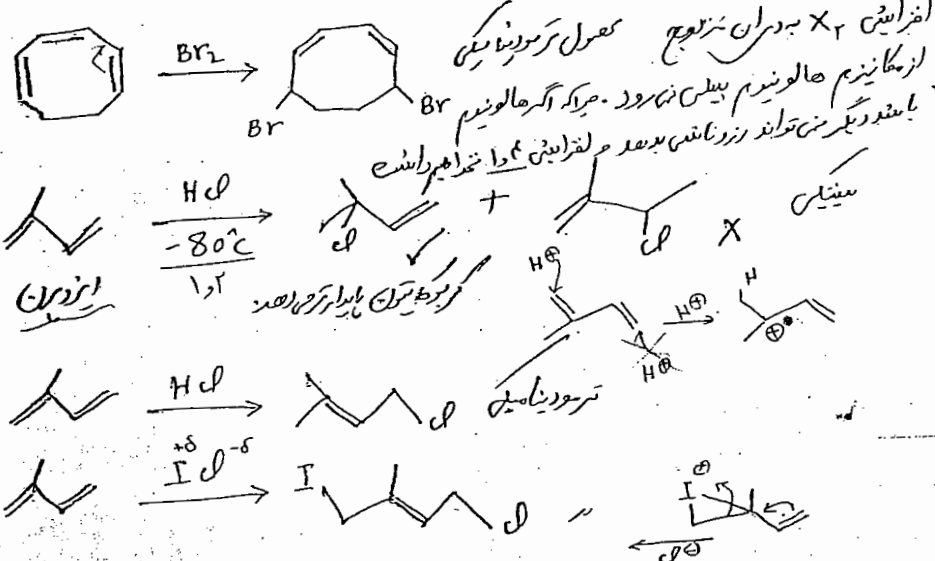 افزایش X₂ به دی‌ان مزدوج محصول ترمودینامیکی
Br₂
Br
Br
از مکانیزم هالونیوم پیش نمی‌رود. چرا که اگر هالونیوم
باشد دیگر نمی‌تواند رزونانس بدهد و افزایش ۱و۴ نخواهیم داشت
HCl
-80°C
۱و۲
Cl
+
Cl
X
سینتیکی
ایزوپرن
کربوکاتیون پایدارتر می‌دهد.
H⊕
H⊕
H⊕
H
⊕
ترمودینامیکی
HCl
Cl
+δ -δ
I Cl
I
Cl
〃
⊕
I
Cl⊖